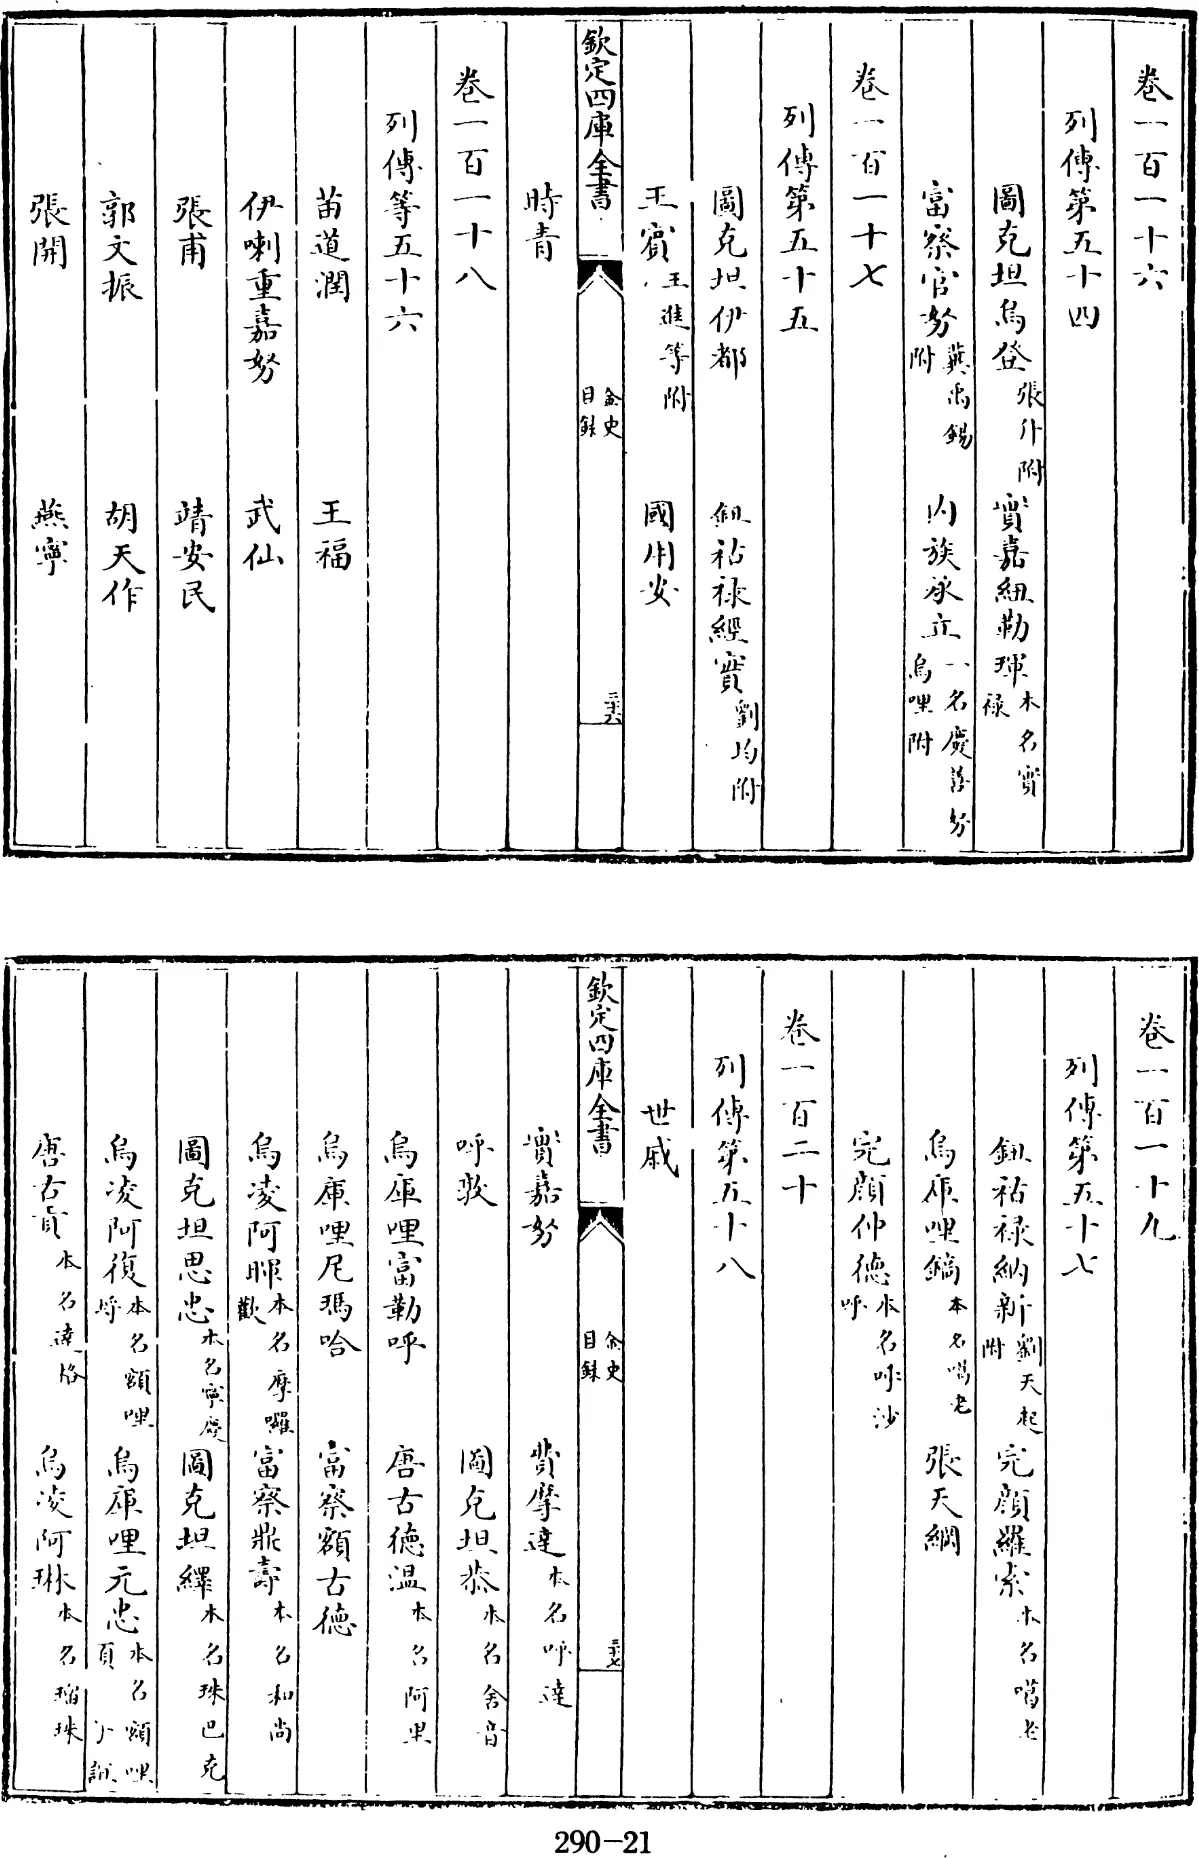 卷一百一十六
列傳第五十四
圖克坦烏登張仆附　實嘉紐勒琿本名實祿
富察官努冀禹錫附　內族承立一名慶善努烏哩附
卷一百一十七
列傳第五十五
圖克坦伊都　鈕祜祿經實劉均附
王賓王進等附　國用安
欽定四庫全書　金史目錄　三十六
時青
卷一百一十八
列傳等五十六
苗道潤　王福
伊喇重嘉努　武仙
張甫　靖安民
郭文振　胡天作
張開　燕寧
卷一百一十九
列傳第五十七
鈕祜祿納新劉天起附　完顏羅索本名噶老
烏庫哩鎬本名噶老　張天綱
完顏仲德本名呼沙呼
卷一百二十
列傳第五十八
世戚
欽定四庫全書　金史目錄　三十七
實嘉努　費摩達本名呼達
呼敦　圖克坦恭本名舍音
烏庫哩富勒呼　唐古德溫本名阿里
烏庫哩尼瑪哈　富察額古德
烏凌阿暉本名摩囉歡　富察鼎壽本名和尚
圖克坦思忠本名寧慶　圖克坦繹本名珠巴克
烏凌阿復本名額哩埒　烏庫哩元忠本名額哩頁
唐古貢本名達格　烏凌阿琳本名瑠珠
290-21